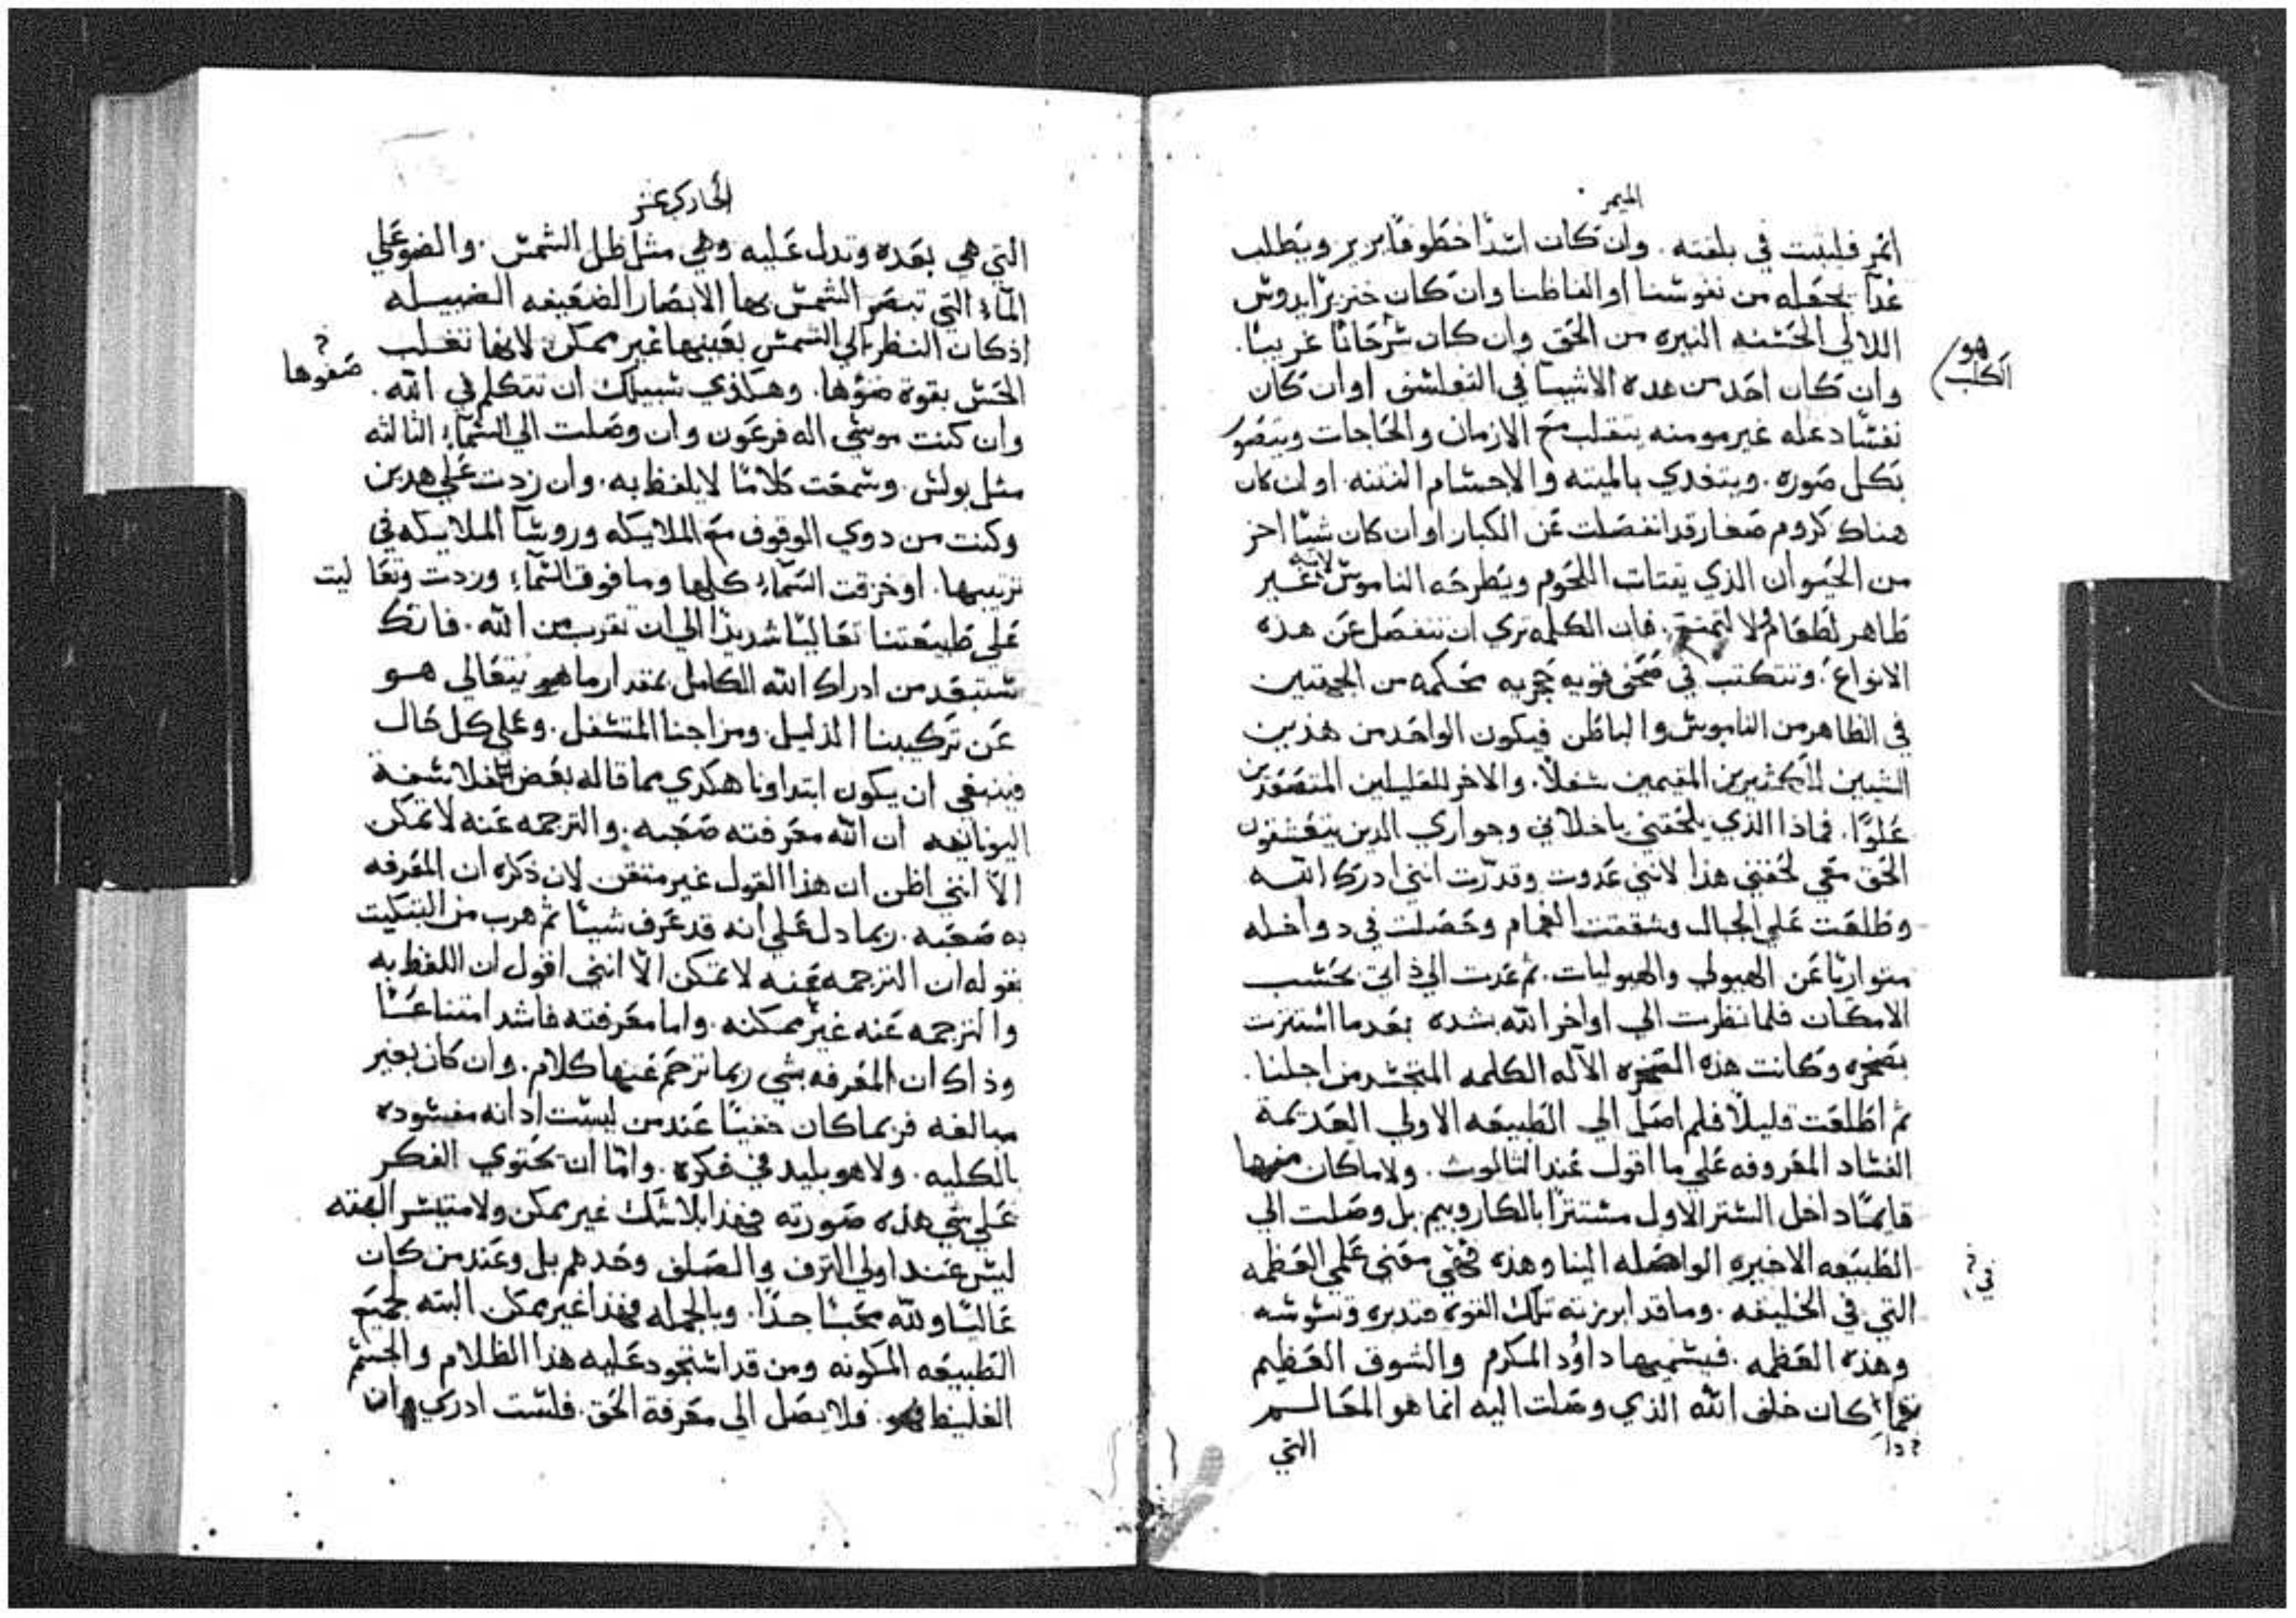 الميمر
انمر فليثبت في بلغته. وان كان اسدًا خطوفًا يزير ويطلب
غدآ يجعله من نفوسنا او الفاظنا وان كان خنزيرًا يدوس
اللالي الحسنه النيره من الحق وان كان سرحانًا غريبًا.
هو
الكلب
وان كان احد من هده الاشيا في التفلسف او ان كان
نفسًا دغله غير مومنه يتقلب مع الازمان والحاجات ويتصور
بكل صوره. ويتغدي بالميته والاجسام النتنه. او ان كان
هناك كروم صغار قد انفصلت عن الكبار او ان كان شيًا اخر
من الحيوان الذي يقتات اللحوم ويطرحه الناموس لانه غير
طاهر لطعام ولا لتمتع. فان الكلمه تري ان ننفصل عن هذه
الانواع. وتنكتب في صحف قويه حجريه محكمه من الجهتين
في الظاهر من الناموس والباطن فيكون الواحد من هذين
الشيين للاكثيرين المقيمين سفلًا. والاخر للقليلين المتصعدين
علوًا. فماذا الذي يلحقني ياخلاني وجواري الدين يتعشقون
الحق معي لحقني هذا لانني غدوت وقدّرت انني ادرك الله
وطلعت علي الجبال وشققت الغمام وحصلت في دواخله
متواريًا عن الهيولي والهيوليات. ثم عدت الي ذاتي بحسب
الامكان فلما نظرت الي اواخر الله بشده بعد ما استترت
بصخره وكانت هذه الصخره الآله الكلمه المتجسد من اجلنا.
ثم اطلعت قليلًا فلم اصل الي الطبيعه الاولي العديمة
الفساد المعروفه علي ما اقول عند الثالوث. ولا ما كان منها
قايمًا داخل الستر الاول مستترًا بالكاروبيم. بل وصلت الي
الطبيعه الاخيره الواصله الينا وهذه فهي معني علمي العظمه
في
التي في الخليقه. وما قد ابرزته تلك القوه وتدبره وتسوسه
وهذه العظمه. فيسميها داوُد المكرم والشوق العظيم
كان خلف الله الذي وصلت اليه انما هو المعالم
التي
الحادي عشر
التي هي بعده وتدل عليه وهي مثل ظل الشمس. والضو علي
المآء التي تبصر الشمس بها الابصار الضعيفه الضييله
اذ كان النظر الي الشمس بعينها غير ممكن لانها تغلب
صفوها
الحس بقوة ضؤها. وهكذي سبيلك ان تتكلم في الله.
وان كنت موسي اله فرعون وان وصلت الي السمآء الثالثه
مثل بولس. وسمعت كلامًا لا يلفظ به. وان زدت علي هدين
وكنت من دوي الوقوف مع الملايكه وروسآ الملايكه في
ترتيبها. او خرقت السمآء كلها وما فوق السمآء وزدت وتعاليت
علي طبيعتنا تعاليًا شديدًا الي ان تقرب من الله. فانك
تستبعد من ادراك الله الكامل بمقدار ما هو يتعالي هو
عن تركيبنا الذليل. ومزاجنا المتسفل. وعلي كل حال
فينبغي ان يكون ابتداونا هكدي مما قاله بعض الفلاسفة
اليونانيه ان الله معرفته صعبه. والترجمه عنه لا تمكن
الا انني اظن ان هذا القول غير متقن لان ذكره ان المعرفه
به صعبه. ربما دل علي انه قد عرف شييًا ثم هرب من التبكيت
بقوله ان الترجمه عنه لا تمكن الّا انني اقول ان اللفظ به
والترجمه عنه غير ممكنه. واما معرفته فاشد امتناعًا
وذاك ان المعرفه بشي ربما ترجم عنها كلام. وان كان بغير
مبالغه فربما كان خفيًا عند من ليست ادانه مفسوده
بالكليه. ولا هو بليد في فكره. وامّا ان يحتوي الفكر
علي شي هذه صورته فهذا بلا شك غير ممكن ولا متيسر البته
ليس عند اولي الترف والصلف وحدهم بل وعند من كان
عاليًا ولله محبًا جدًا. وبالجمله فهذا غير ممكن البته لجميع
الطبيعه المكونه ومن قد استحود عليه هذا الظلام والجسم
الغليظ فهو. فلا يصل الى معرفة الحق. فلست ادري وان